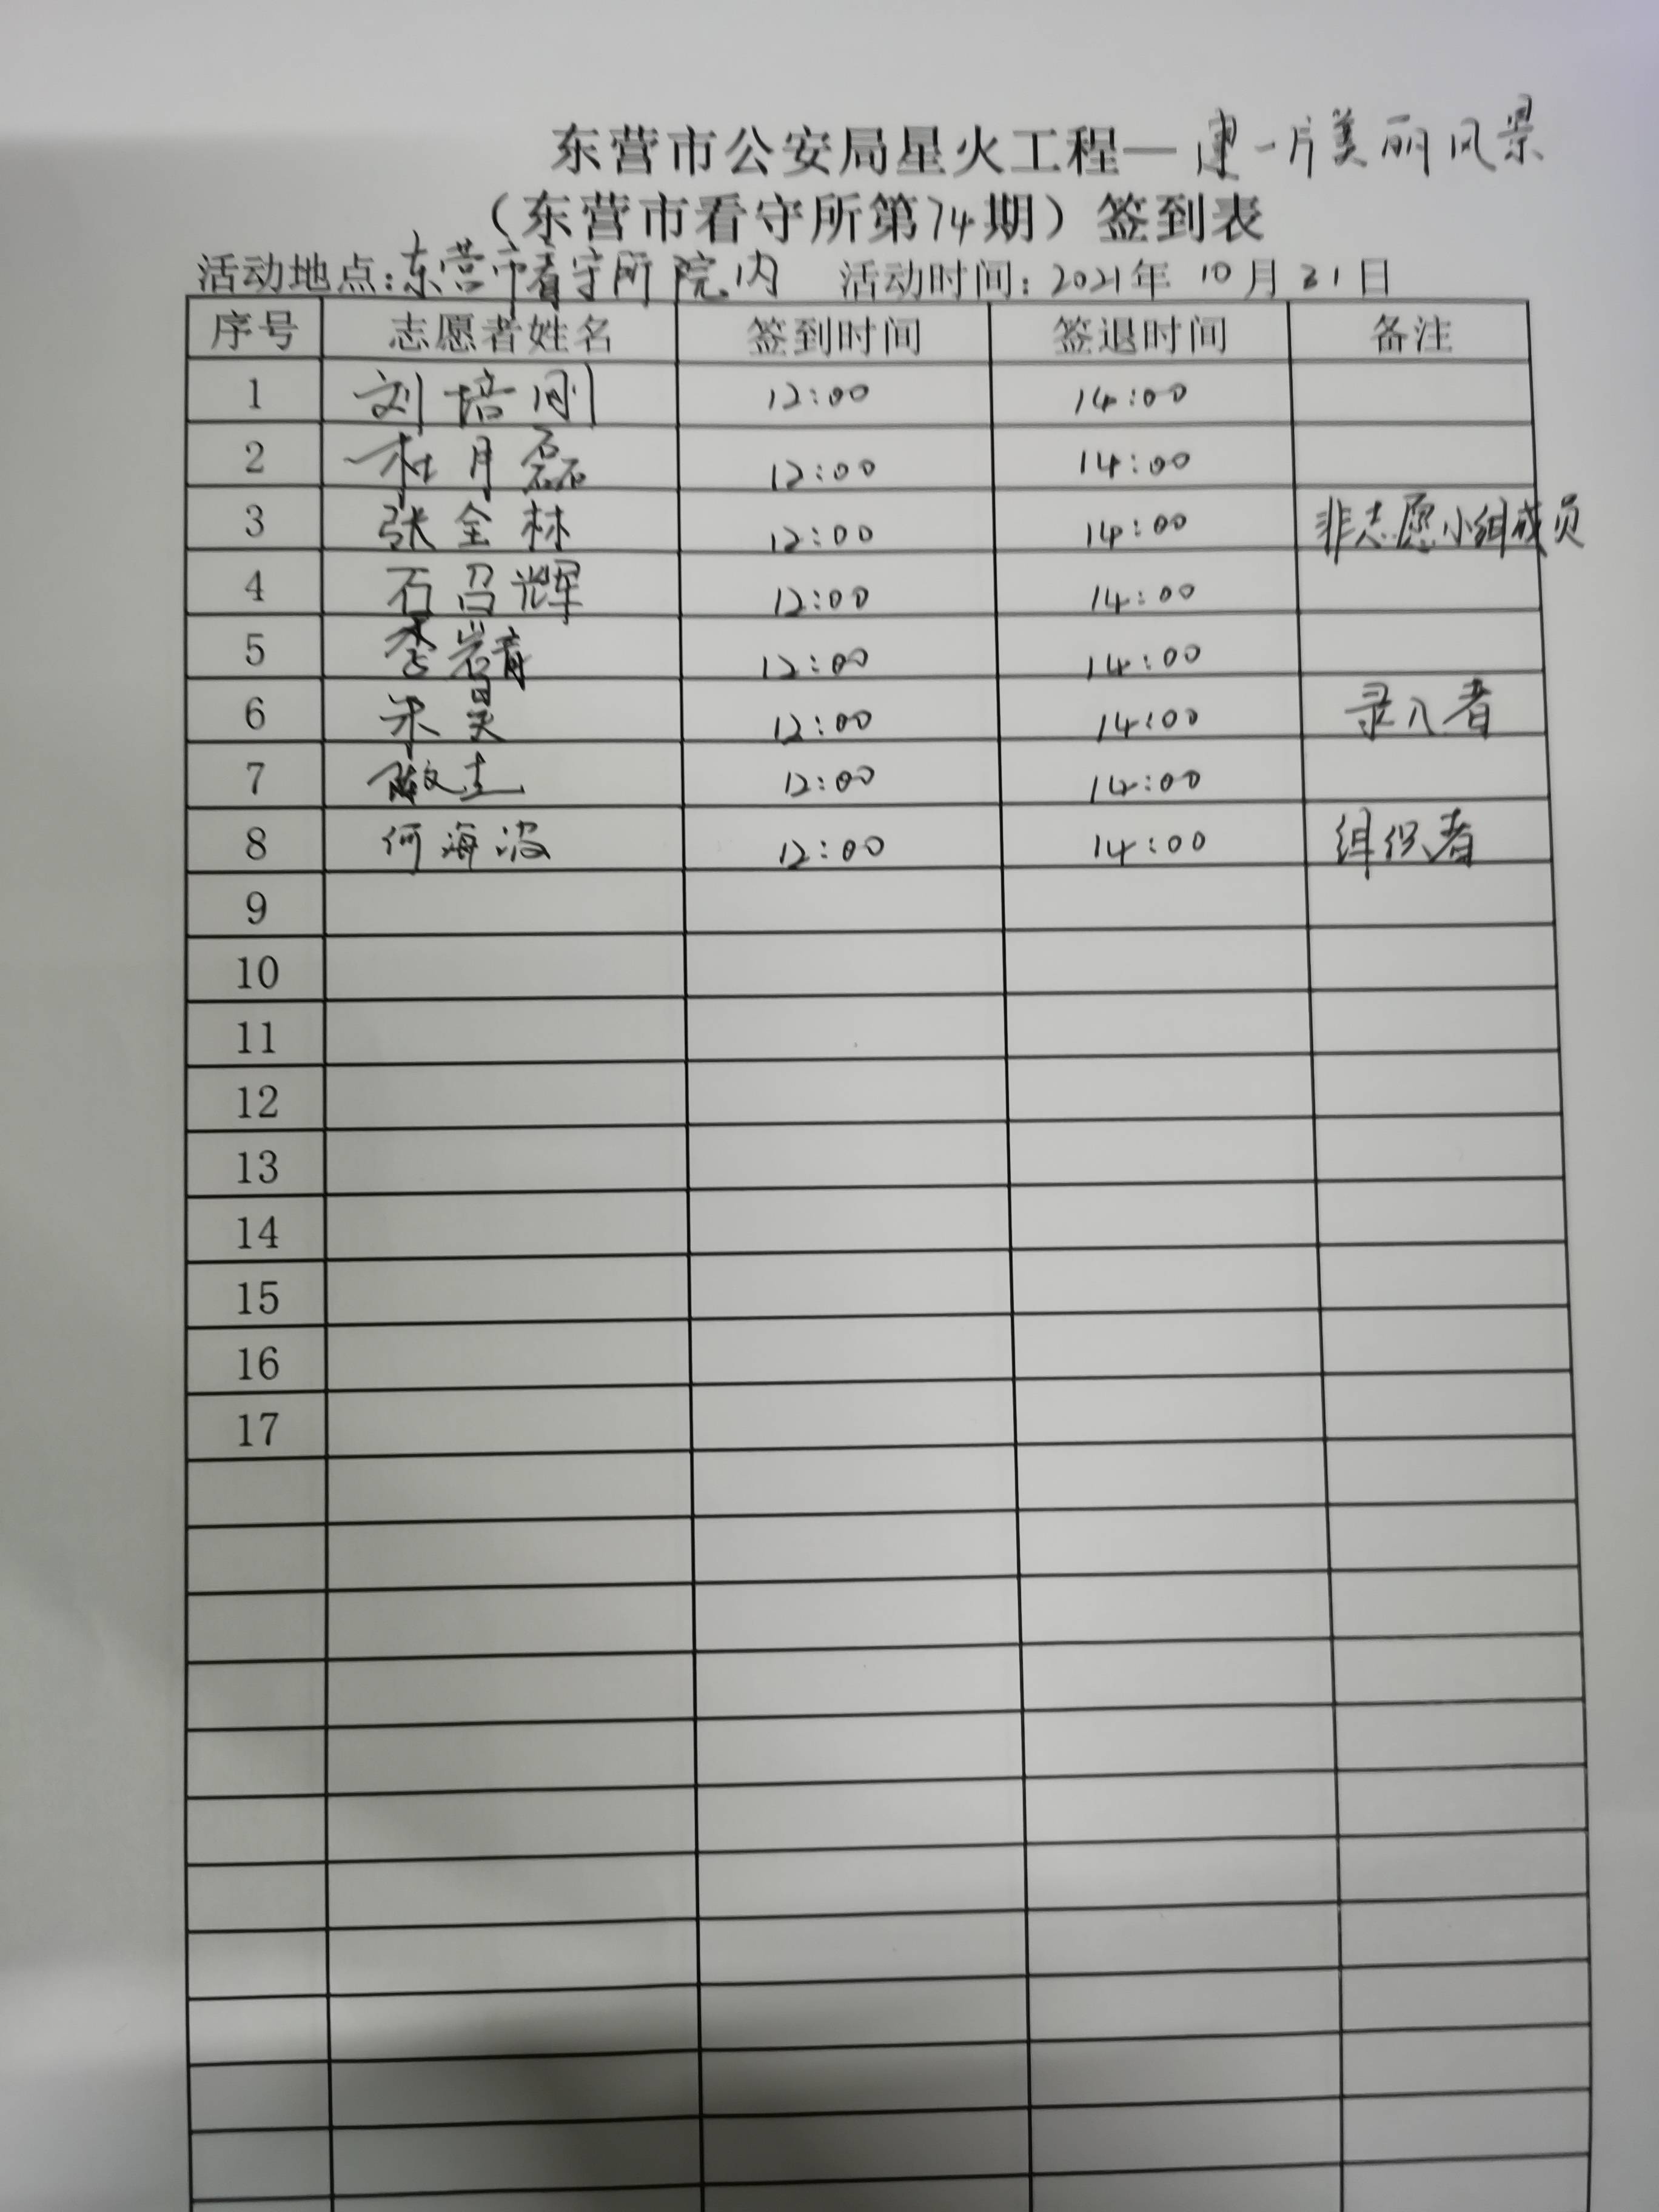 东营市公安局星火工程—建一片美丽风景
（东营市看守所第74期）签到表
活动地点:东营市看守所院内 活动时间: 2021年 10月 31日
序号 志愿者姓名 签到时间 签退时间 备注
1 刘培刚 12:00 14:00
2 杜月磊 12:00 14:00
3 张全林 12:00 14:00 非志愿小组成员
4 石召辉 12:00 14:00
5 李岩青 12:00 14:00
6 宋昊 12:00 14:00 录入者
7 12:00 14:00
8 何海波 12:00 14:00 组织者
9
10
11
12
13
14
15
16
17